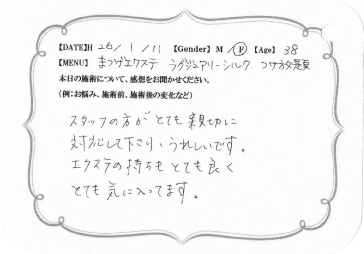 【DATE】H 26 / 1 / 11 【Gender】 M / F 【Age】 38
【MENU】 まつげエクステ ラグジュアリーシルク つけ放題
本日の施術について、感想をお聞かせください。
(例：お悩み、施術前、施術後の変化など)
スタッフの方がとても親切に
対応して下さり、うれしいです。
エクステの持ちもとても良く
とても気に入ってます。